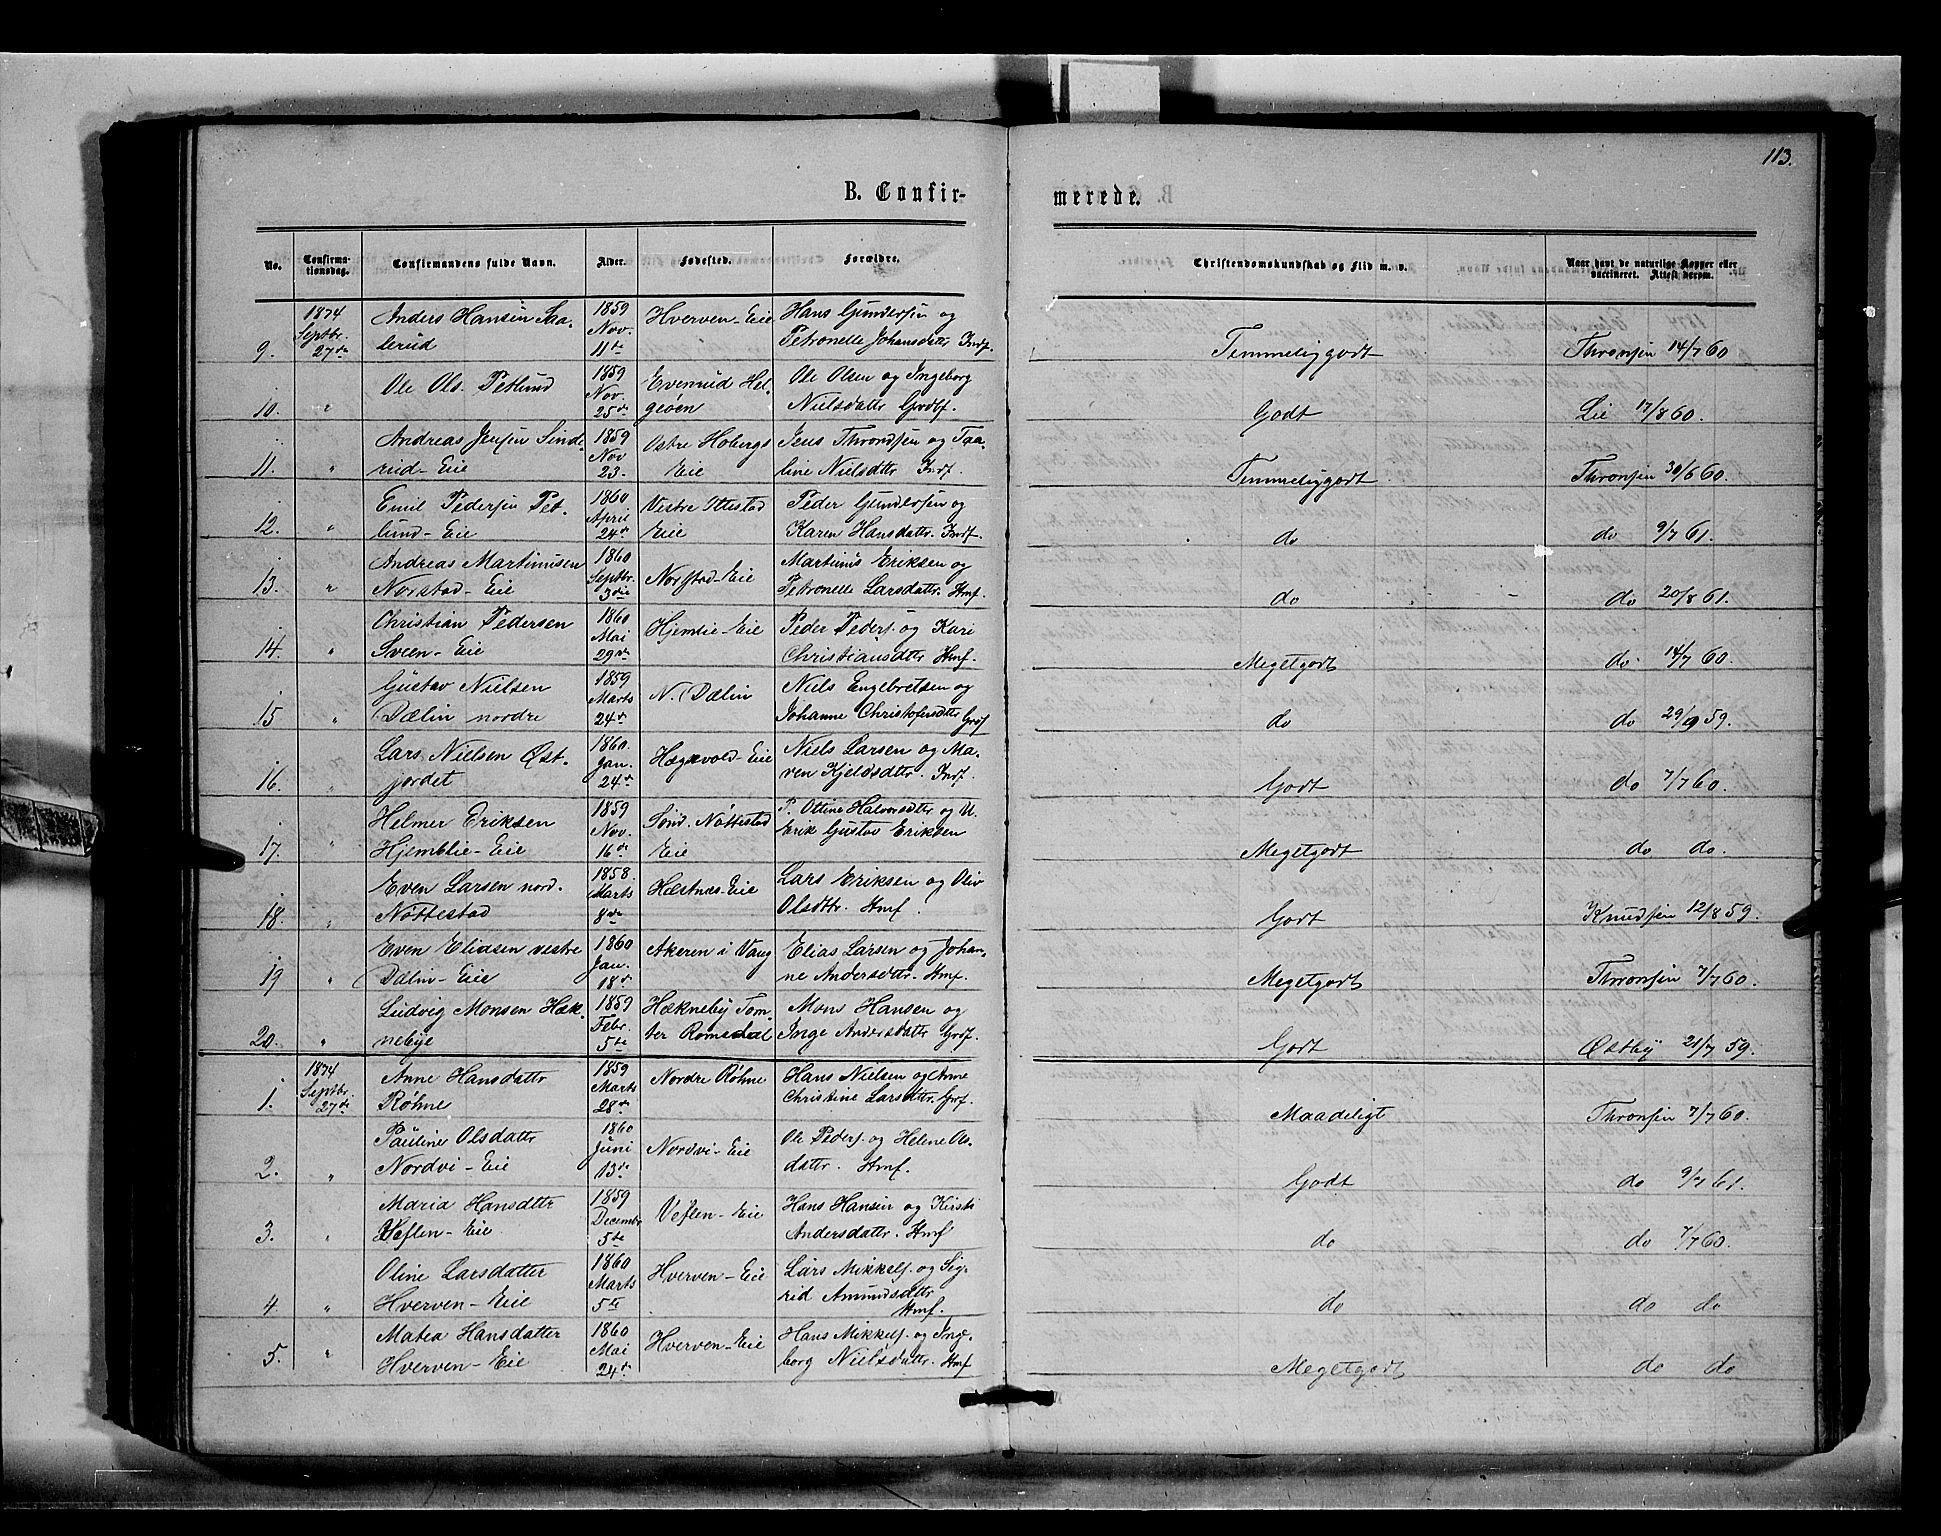 113.
B. Confirmerede.
No. Confirmationsdag. Confirmandens fulde Navn. Alder. Fødested. Forældre. Christendomskundskab og Flid m. v. Naar havt de naturlige Kopper eller vaccineret. Attest derom.
9. 1874 Septbr. 27de Anders Hansen Saaterud 1859 Nov. 11te Hverven-Eie Hans Gundersen og Petronelle Johansdattr Indf. Temmeliggodt Thronsen 14/7 60
10. " Ole Ols. Petlund 1859 Nov. 25de Evenrud Helgeøen Ole Olsen og Ingeborg Nielsdattr Grdbf. Godt Lie 17/8 60.
11. " Andreas Jensen Sinderud-Eie 1859 Nov 23. Østre Hobergs Eie Jens Throndsen og Thaline Nielsdttr Indf. Temmeliggodt Thronsen 30/6 60.
12. " Emil Pedersen Petlund-Eie 1860 April 24de Vestre Ittestad Eie Peder Gundersen og Karen Hansdattr. Indf. do do 9/7 61.
13. " Andreas Martinusen Norstad-Eie 1860 Septbr. 3die Norstad-Eie Martinus Eriksen og Petronelle Larsdattr. Hmf. do do 20/8 61.
14. " Christian Pedersen Sveen-Eie 1860 Mai 29de Hjemlie-Eie Peder Peders. og Kari Christiansdttr Hmf. Megetgodt do 14/7 60.
15 " Gustav Nielsen Dælin nordre 1859 Marts 24de N. Dælin Niels Engebretsen og Johanne Christofersdttr Grdf do do 29/9 59.
16. " Lars Nielsen Østjordet 1860. Jan. 24de Hægvold-Eie Niels Larsen og Maren Kjeldsdttr. Indf. Godt do 7/7 60.
17. " Helmer Eriksen Hjemblie-Eie 1859 Nov. 16de Sønd. Nøttestad Eie P. Ottine Halvorsdttr og U. Erik Gustav Eriksen Megetgodt do do.
18. " Even Larsen nord. Nøttestad 1858. Marts 8de Hæstnæs-Eie Lars Eriksen og Oliv Olsdttr. Hmf. Godt Knudsen 12/8 59.
19 " Even Eliasen vestre Dælin-Eie 1860 Jan. 18de Akeren i Vang Elias Larsen og Johanne Andersdttr. Hmf. Megetgodt Thronsen 7/7 60.
20. " Ludvig Monsen Hæknebye 1859 Febr. 5te Hækneby Tomter Romsdal Mons Hansen og Inge Andersdattr Grdf. Godt Østby 21/7 59.
1. 1874 Septbr. 27de Anne Hansdattr Røhne 1859 Marts 28de Nordre Røhne Hans Nielsen og Anne Christine Larsdttr. Grdf. Maadeligt Thronsen 7/7 60.
2. " Pauline Olsdattr Nordvi-Eie 1860 Juni 13de Nordvi-Eie Ole Peders. og Helene Olsdattr. Hmf. Godt do 9/7 61.
3. " Maria Hansdttr Veflen-Eie. 1859 Decembr 5te Veflen-Eie Hans Hansen og Kirsti Andersdattr. Hmf do do 7/7 60.
4. " Oline Larsdatter Hverven-Eie 1860 Marts 5te Hverven-Eie Lars Mikkels. og Sigrid Amundsdttr Hmf. do do do
5. " Matea Hansdatter Hverven-Eie 1860 Mai 24de Hverven-Eie Hans Mikkels. og Ingeborg Nielsdattr. Hmf Megetgodt do do